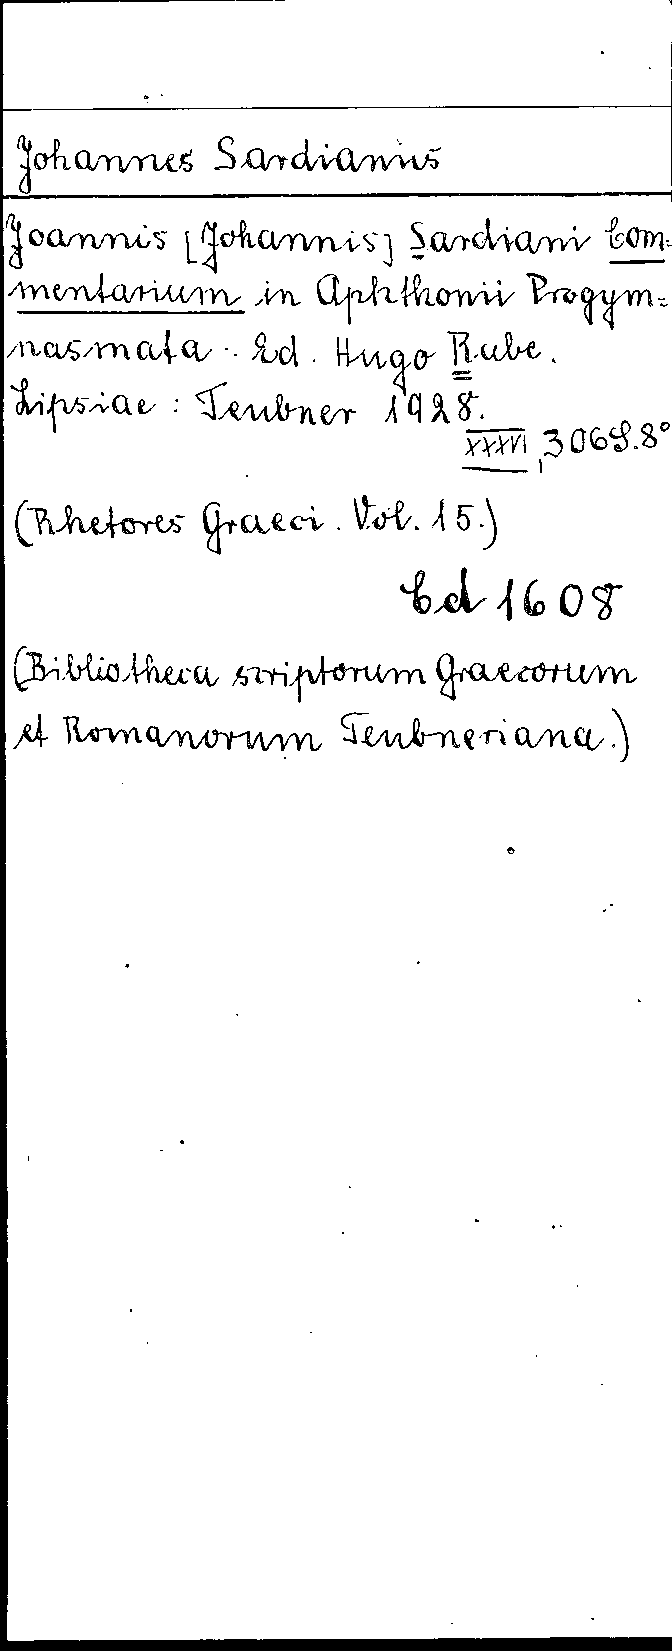 Johannes Sardianus
Joannis [Johannis] Sardiani Com=
mentarium in Aphthonii Progym=
nasmata. Ed. Hugo Rabe.
Lipsiae: Teubner 1928.
XXXVI, 306 S. 8°
(Rhetores Graeci. Vol. 15.)
Cd 1608
(Bibliotheca scriptorum Graecorum
et Romanorum Teubneriana.)